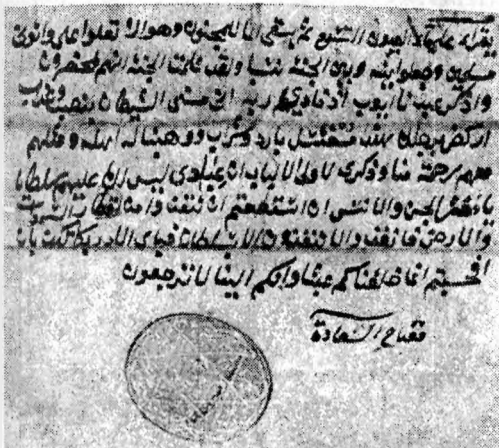 يقرأه عليها الشرع ثم يسقي الماء للمجنون وهو الا تعلوا علي واتوني
مسلمين وجعلوا بينه وبين الجنة نسبا ولقد علمت الجنة انهم لمحضرون
واذكر عبدنا ايوب اذ نادى ربه اني مسني الشيطان بنصب وعذاب
اركض برجلك هذا مغتسل بارد وشراب ووهبنا له اهله ومثلهم
معهم رحمة منا وذكرى لاولي الالباب ان عبادي ليس لك عليهم سلطان
يا معشر الجن والانس ان استطعتم ان تنفذوا من اقطار السموات
والارض فانفذوا لا تنفذون الا بسلطان فباي الاء ربكما تكذبان
افحسبتم انما خلقناكم عبثا وانكم الينا لا ترجعون
مفتاح السعادة